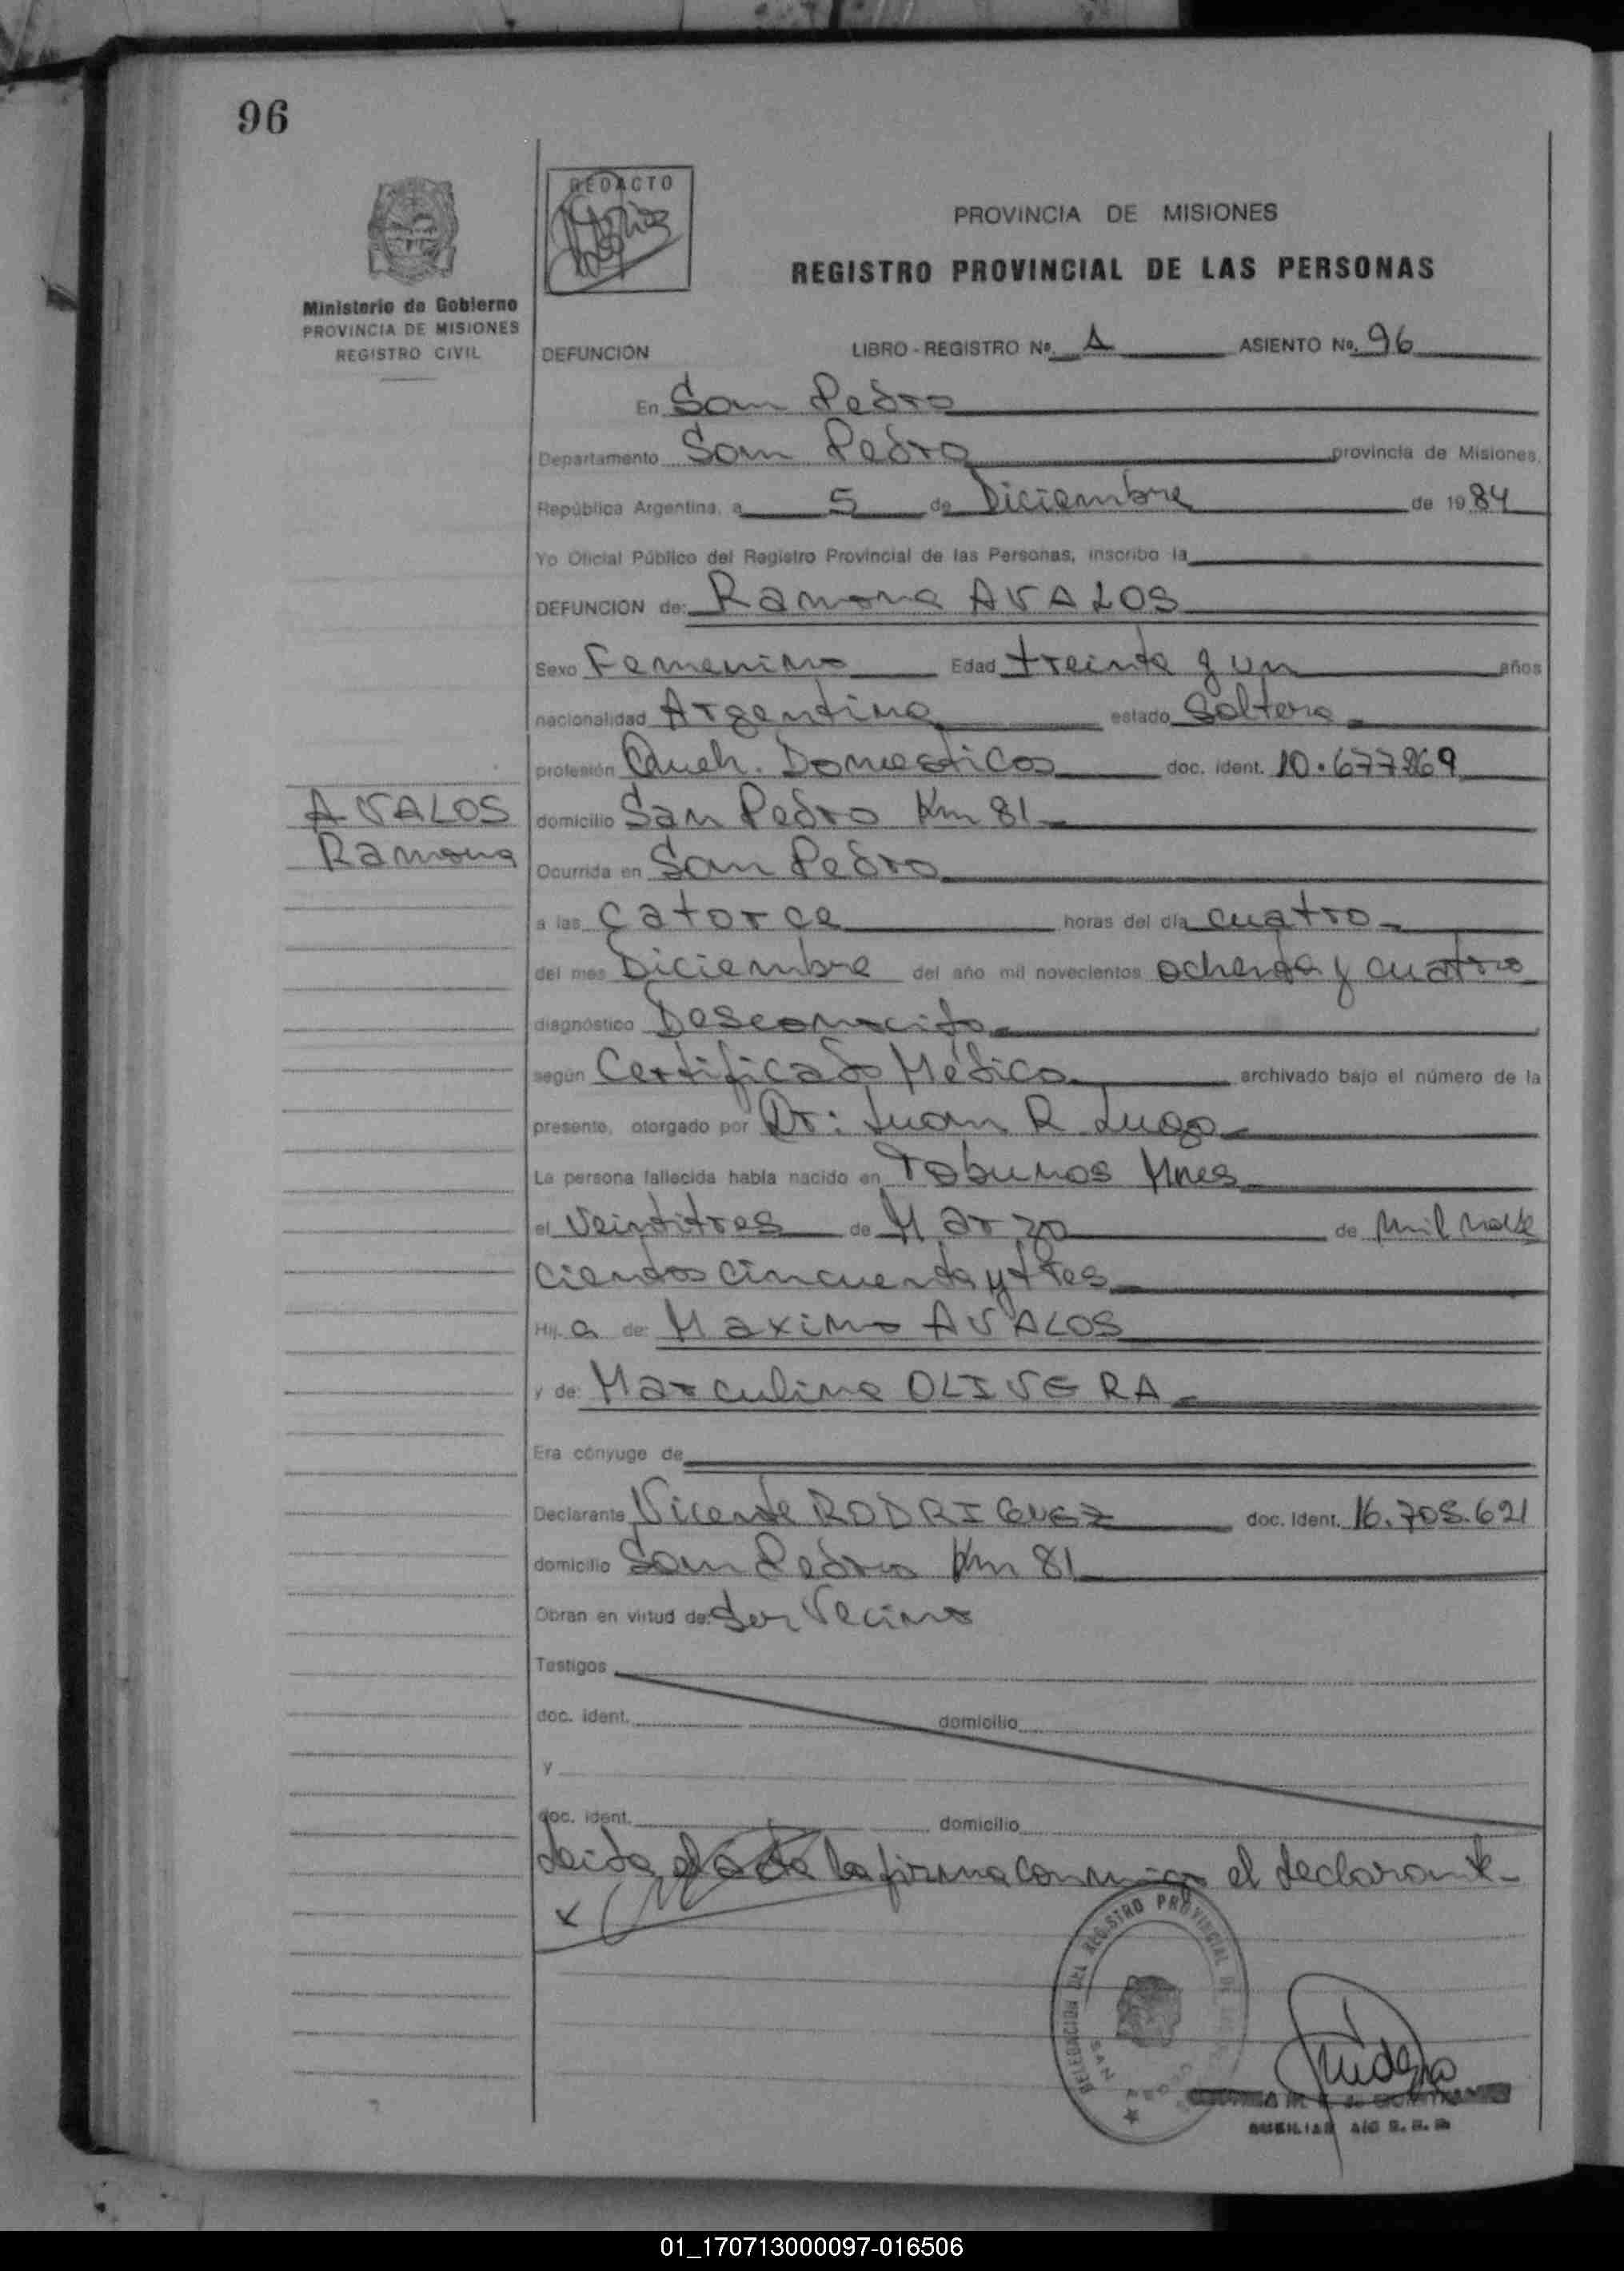 96
REDACTO
PROVINCIA DE MISIONES
REGISTRO PROVINCIAL DE LAS PERSONAS
Ministerio de Gobierno
PROVINCIA DE MISIONES
REGISTRO CIVIL
DEFUNCION LIBRO - REGISTRO Nº ASIENTO Nº. 96
En San Pedro
Departamento San Pedro provincia de Misiones,
República Argentina, a 5 de Diciembre de 1984
Yo Oficial Público del Registro Provincial de las Personas, inscribo la
DEFUNCION de: Ramona AVALOS
Sexo Femenino Edad treinta y un años
nacionalidad Argentina estado Soltera
profesión Queh. Domesticos doc. ident. 10.677.269
AVALOS
Ramona
domicilio San Pedro Km 81
Ocurrida en San Pedro
a las catorce horas del día cuatro
del mes Diciembre del año mil novecientos ochenta y cuatro
diagnóstico Desconocido
según Certificado Médico archivado bajo el número de la
presente, otorgado por Dr: Juan R Lugo
La persona fallecida había nacido en Tobunos Mnes
el veintitres de Marzo de mil nove
cientos cincuenta y tres
Hij a de: Maximo AVALOS
y de: Marculina OLIVERA
Era cónyuge de
Declarante Vicente RODRIGUEZ doc. Ident. 16.708.621
domicilio San Pedro Km 81
Obran en virtud de: Ser Vecino
Testigos
doc. ident. domicilio
y
doc. ident. domicilio
Leida el acta la firma conmigo el declarante
x
DELEGACION DEL REGISTRO PROVINCIAL DE LAS
SAN PEDRO
AUXILIAR A/C
01_170713000097-016506